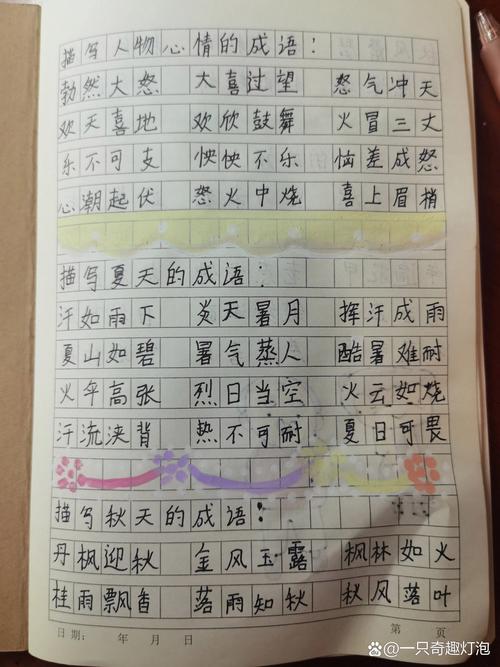 描写人物心情的成语：
勃然大怒 大喜过望 怒气冲天
欢天喜地 欢欣鼓舞 火冒三丈
乐不可支 怏怏不乐 恼差成怒
心潮起伏 怒火中烧 喜上眉梢
描写夏天的成语：
汗如雨下 炎天暑月 挥汗成雨
夏山如碧 暑气蒸人 酷暑难耐
火伞高张 烈日当空 火云如烧
汗流浃背 热不可耐 夏日可畏
描写秋天的成语：
丹枫迎秋 金风玉露 枫林如火
桂雨飘香 落雨知秋 秋风落叶
日期： 年 月 日 第 页
一只奇趣灯泡